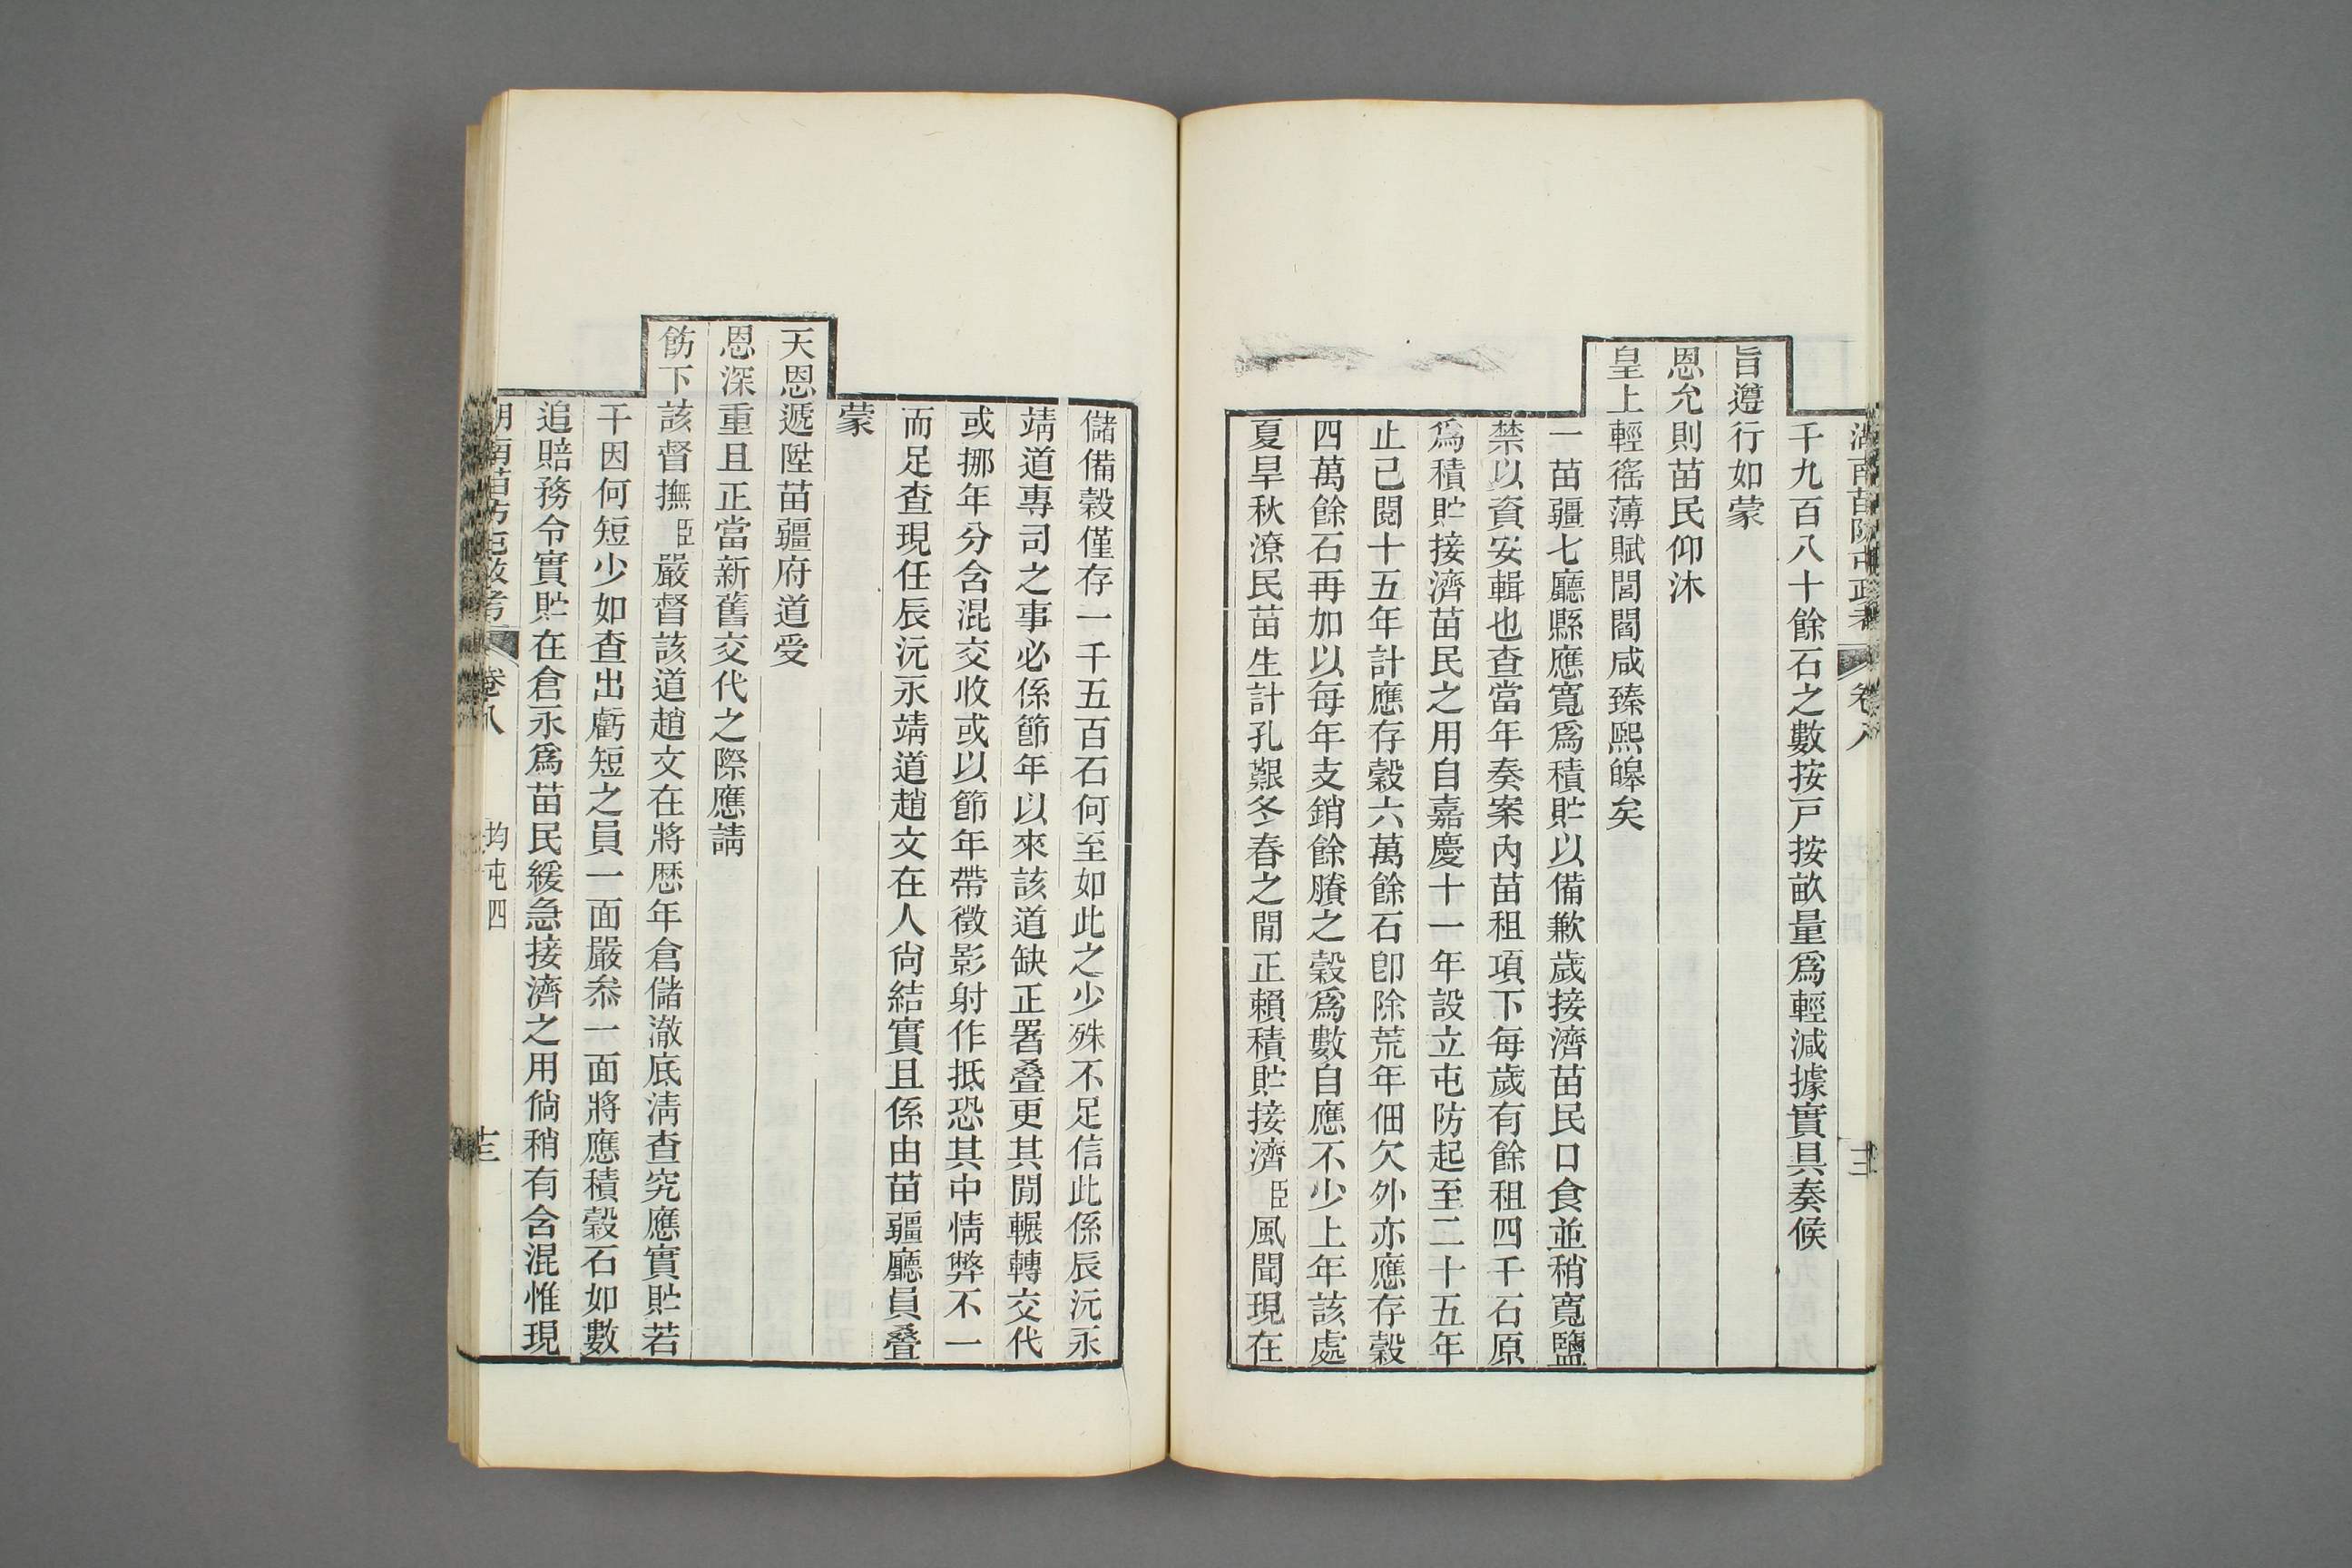 湖南苗防屯政考 卷八 十二
千九百八十餘石之數按戸按畝量爲輕減據實具奏候
旨遵行如蒙
恩允則苗民仰沐
皇上輕徭薄賦閭閻咸臻熙皞矣
一苗疆七廳縣應寬爲積貯以備歉歲接濟苗民口食並稍寬鹽
禁以資安輯也查當年奏案內苗租項下每歲有餘租四千石原
爲積貯接濟苗民之用自嘉慶十一年設立屯防起至二十五年
止已閱十五年計應存穀六萬餘石卽除荒年佃欠外亦應存穀
四萬餘石再加以每年支銷餘賸之穀爲數自應不少上年該處
夏旱秋潦民苗生計孔艱冬春之閒正賴積貯接濟臣風聞現在
儲備穀僅存一千五百石何至如此之少殊不足信此係辰沅永
靖道專司之事必係節年以來該道缺正署叠更其閒輾轉交代
或挪年分含混交收或以節年帶徵影射作抵恐其中情弊不一
而足查現任辰沅永靖道趙文在人尙結實且係由苗疆廳員叠
蒙
天恩遞陞苗疆府道受
恩深重且正當新舊交代之際應請
飭下該督撫臣嚴督該道趙文在將歷年倉儲澈底淸查究應實貯若
干因何短少如查出虧短之員一面嚴叅一面將應積穀石如數
追賠務令實貯在倉永爲苗民緩急接濟之用倘稍有含混惟現
湖南苗防屯政考 卷八 均屯四 十三